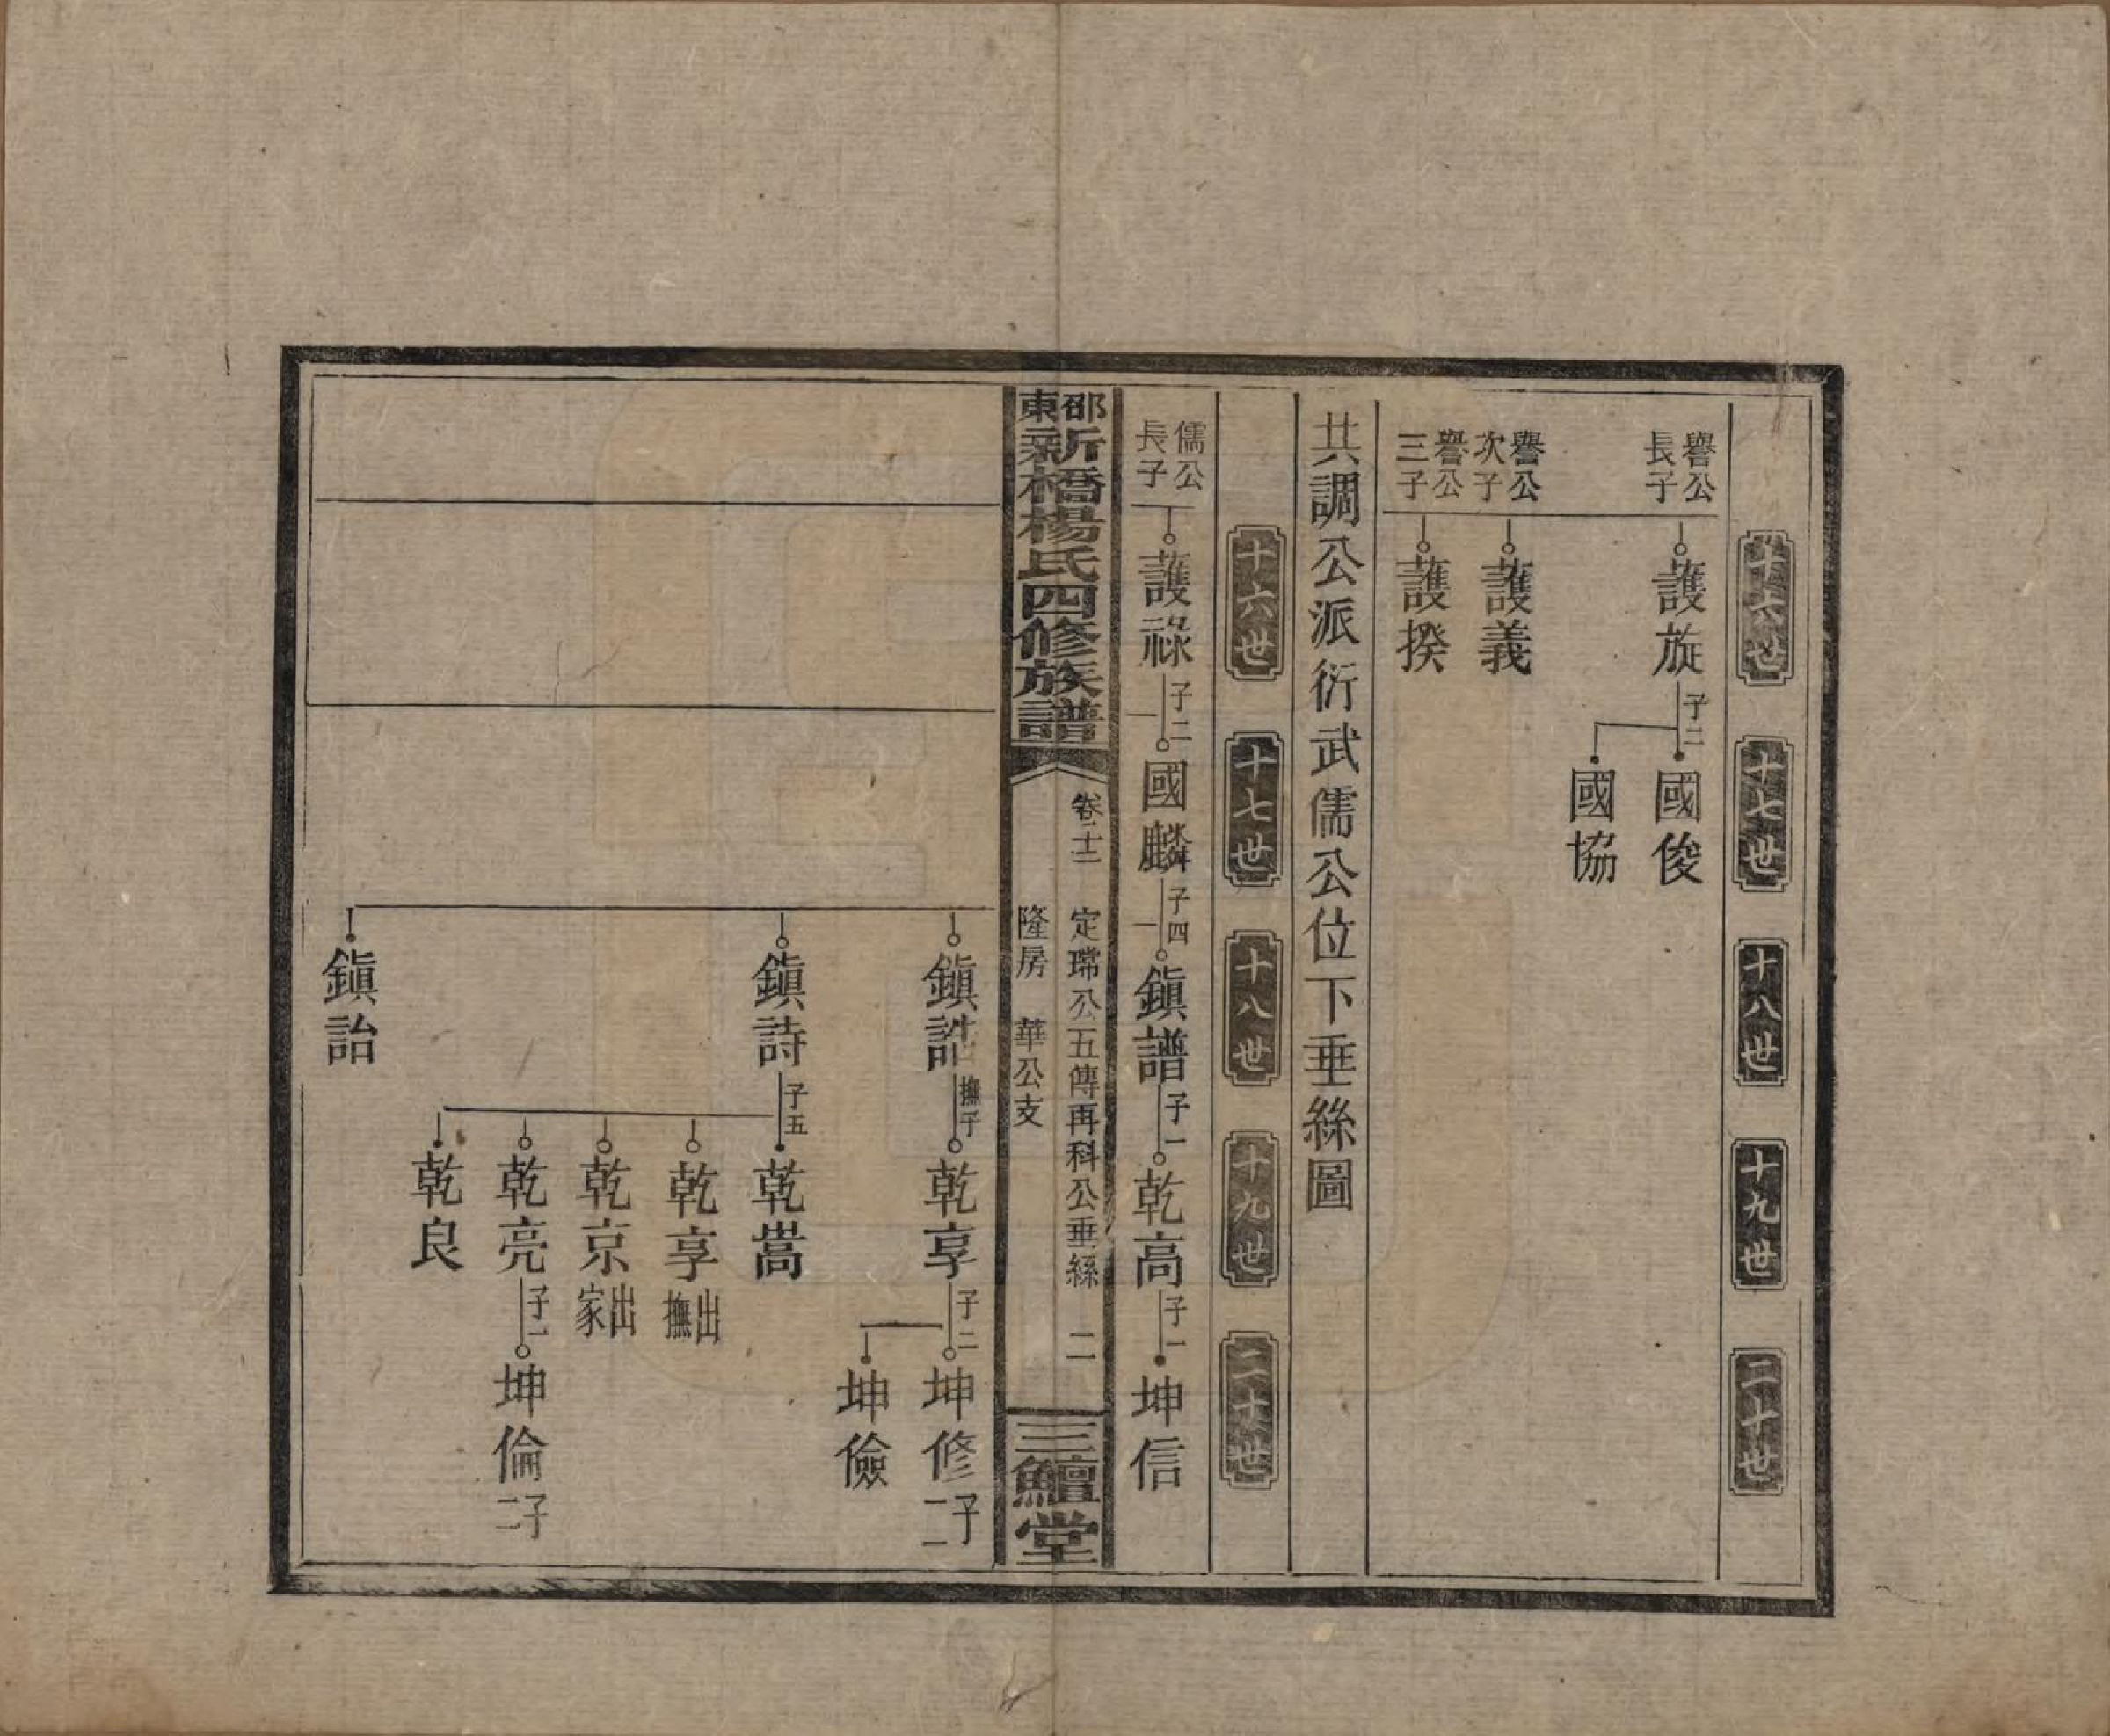 十六世
十七世
十八世
十九世
二十世
譽公長子
護旋
子二
國俊
國協
譽公次子
護義
譽公三子
護揆
共調公派衍武儒公位下垂絲圖
十六世
十七世
十八世
十九世
二十世
儒公長子
護祿
子二
國麟
子四
鎮譜
子一
乾高
子一
坤信
邵東新橋楊氏四修族譜
卷二十二
定瑺公五傳再科公垂絲
二
隆房
華公支
三鱣堂
鎮誥
撫子
乾享
子二
坤修
子二
坤儉
鎮詩
子五
乾嵩
乾享
出撫
乾京
出家
乾亮
子一
坤倫
子二
乾良
鎮詒